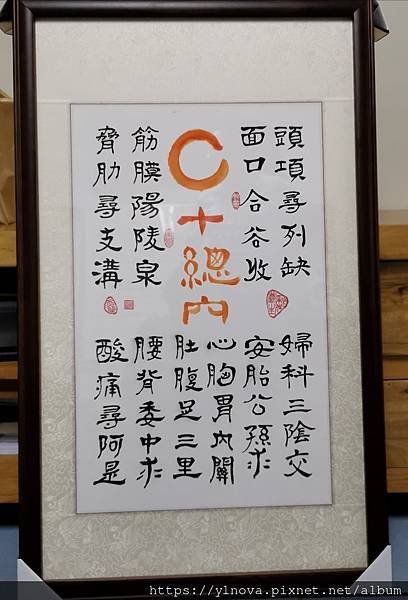 頭項尋列缺
面口合谷收
十總內
筋膜陽陵泉
脅肋尋支溝
婦科三陰交
安胎公孫求
心胸胃內關
肚腹足三里
腰背委中求
酸痛尋阿是
https://ylnova.pixnet.net/album